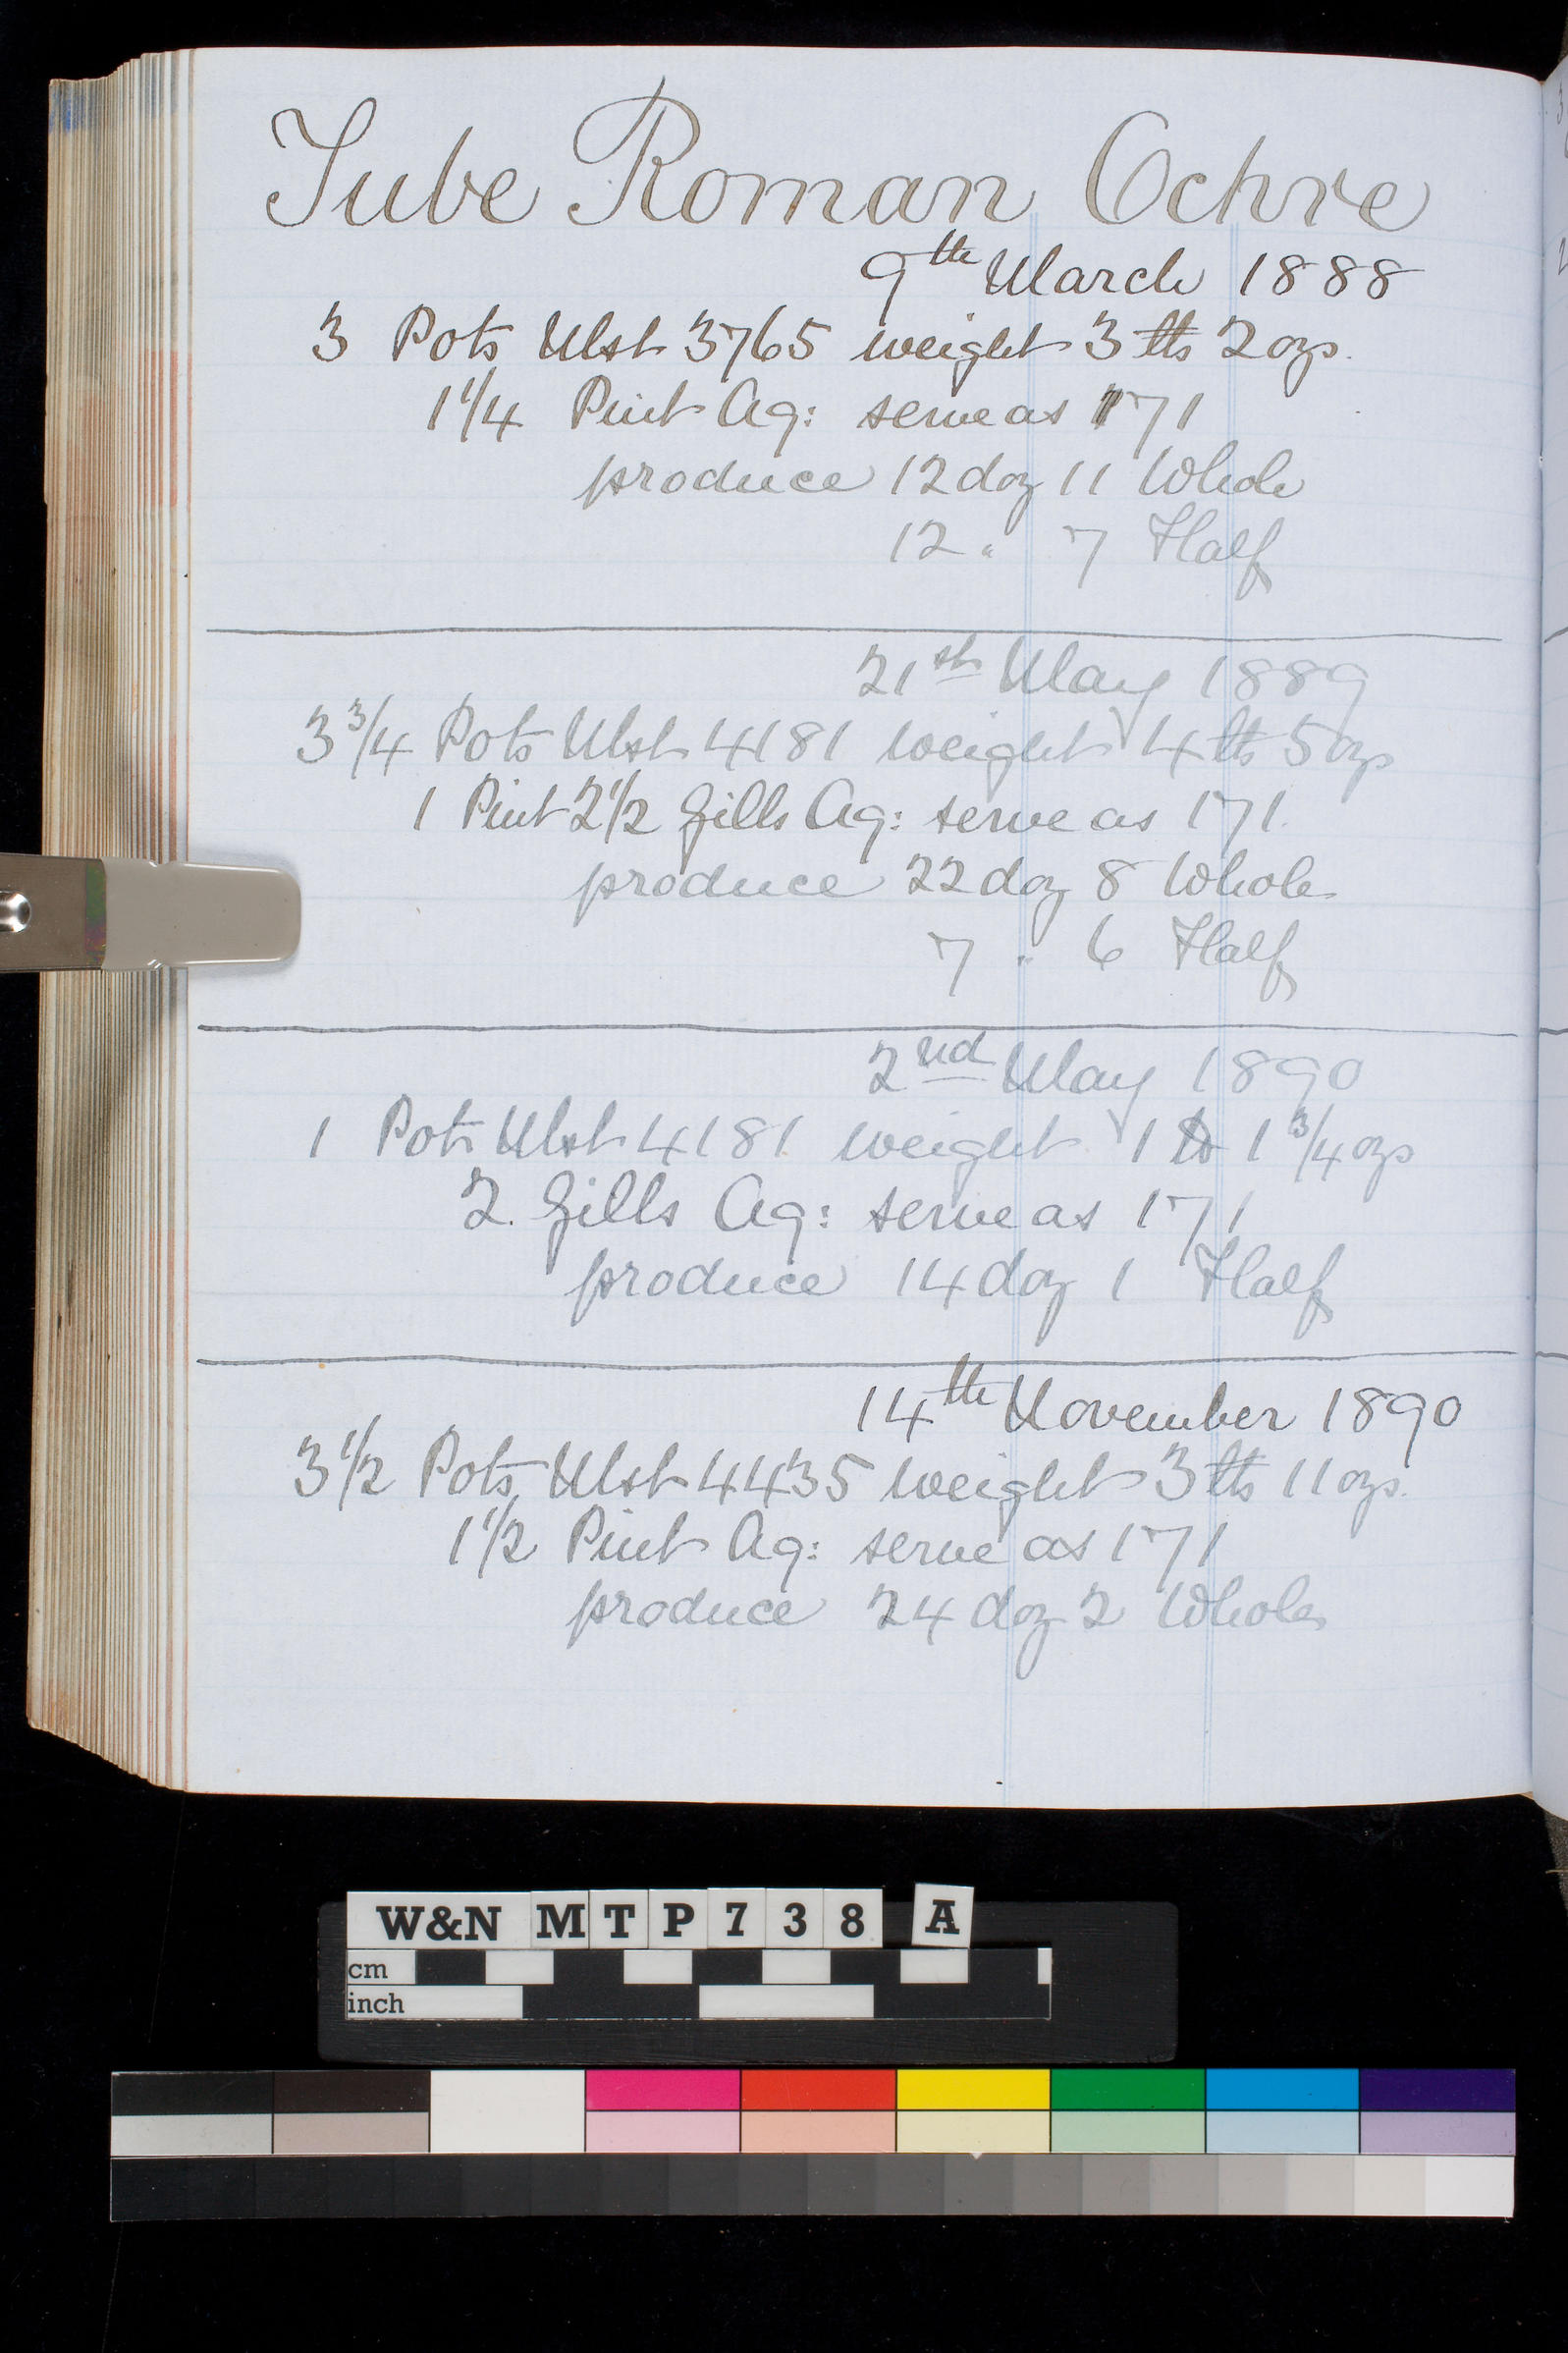 Tube Roman Ochre
9th March 1888
3 Pots Mst 3765 weight 3 lbs 2 ozs.
1 1/4 Pint Aq: serve as 171
produce 12 doz 11 Whole
12 " 7 Half
21st May 1889
3 3/4 Pots Mst 4181 weight 4 lbs 5 ozs
1 Pint 2 1/2 Gills Aq: serve as 171.
produce 22 doz 8 Whole
7 " 6 Half
2nd May 1890
1 Pots Mst 4181 weight 1 lb 1 3/4 ozs
2. Gills Aq: serve as 171
produce 14 doz 1 Half
14th November 1890
3 1/2 Pots Mst 4435 weight 3 lbs 11 ozs.
1 1/2 Pint Aq: serve as 171
produce 24 doz 2 Whole
W&N MTP738 A
cm
inch